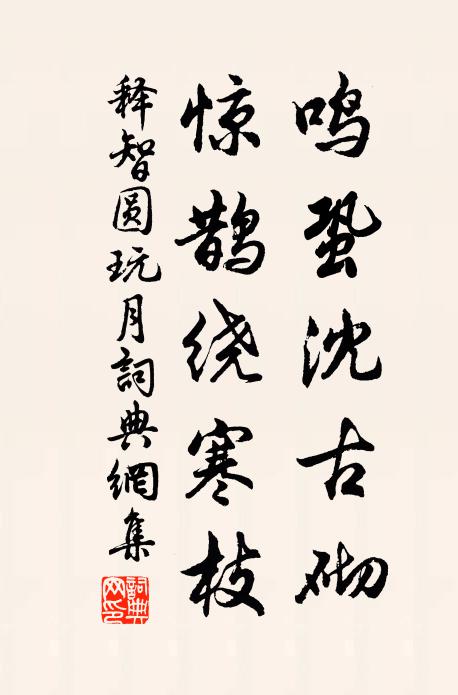 鸣蛩沈古砌
惊鹊绕寒枝
释智圆玩月詞典網集
詞典網印